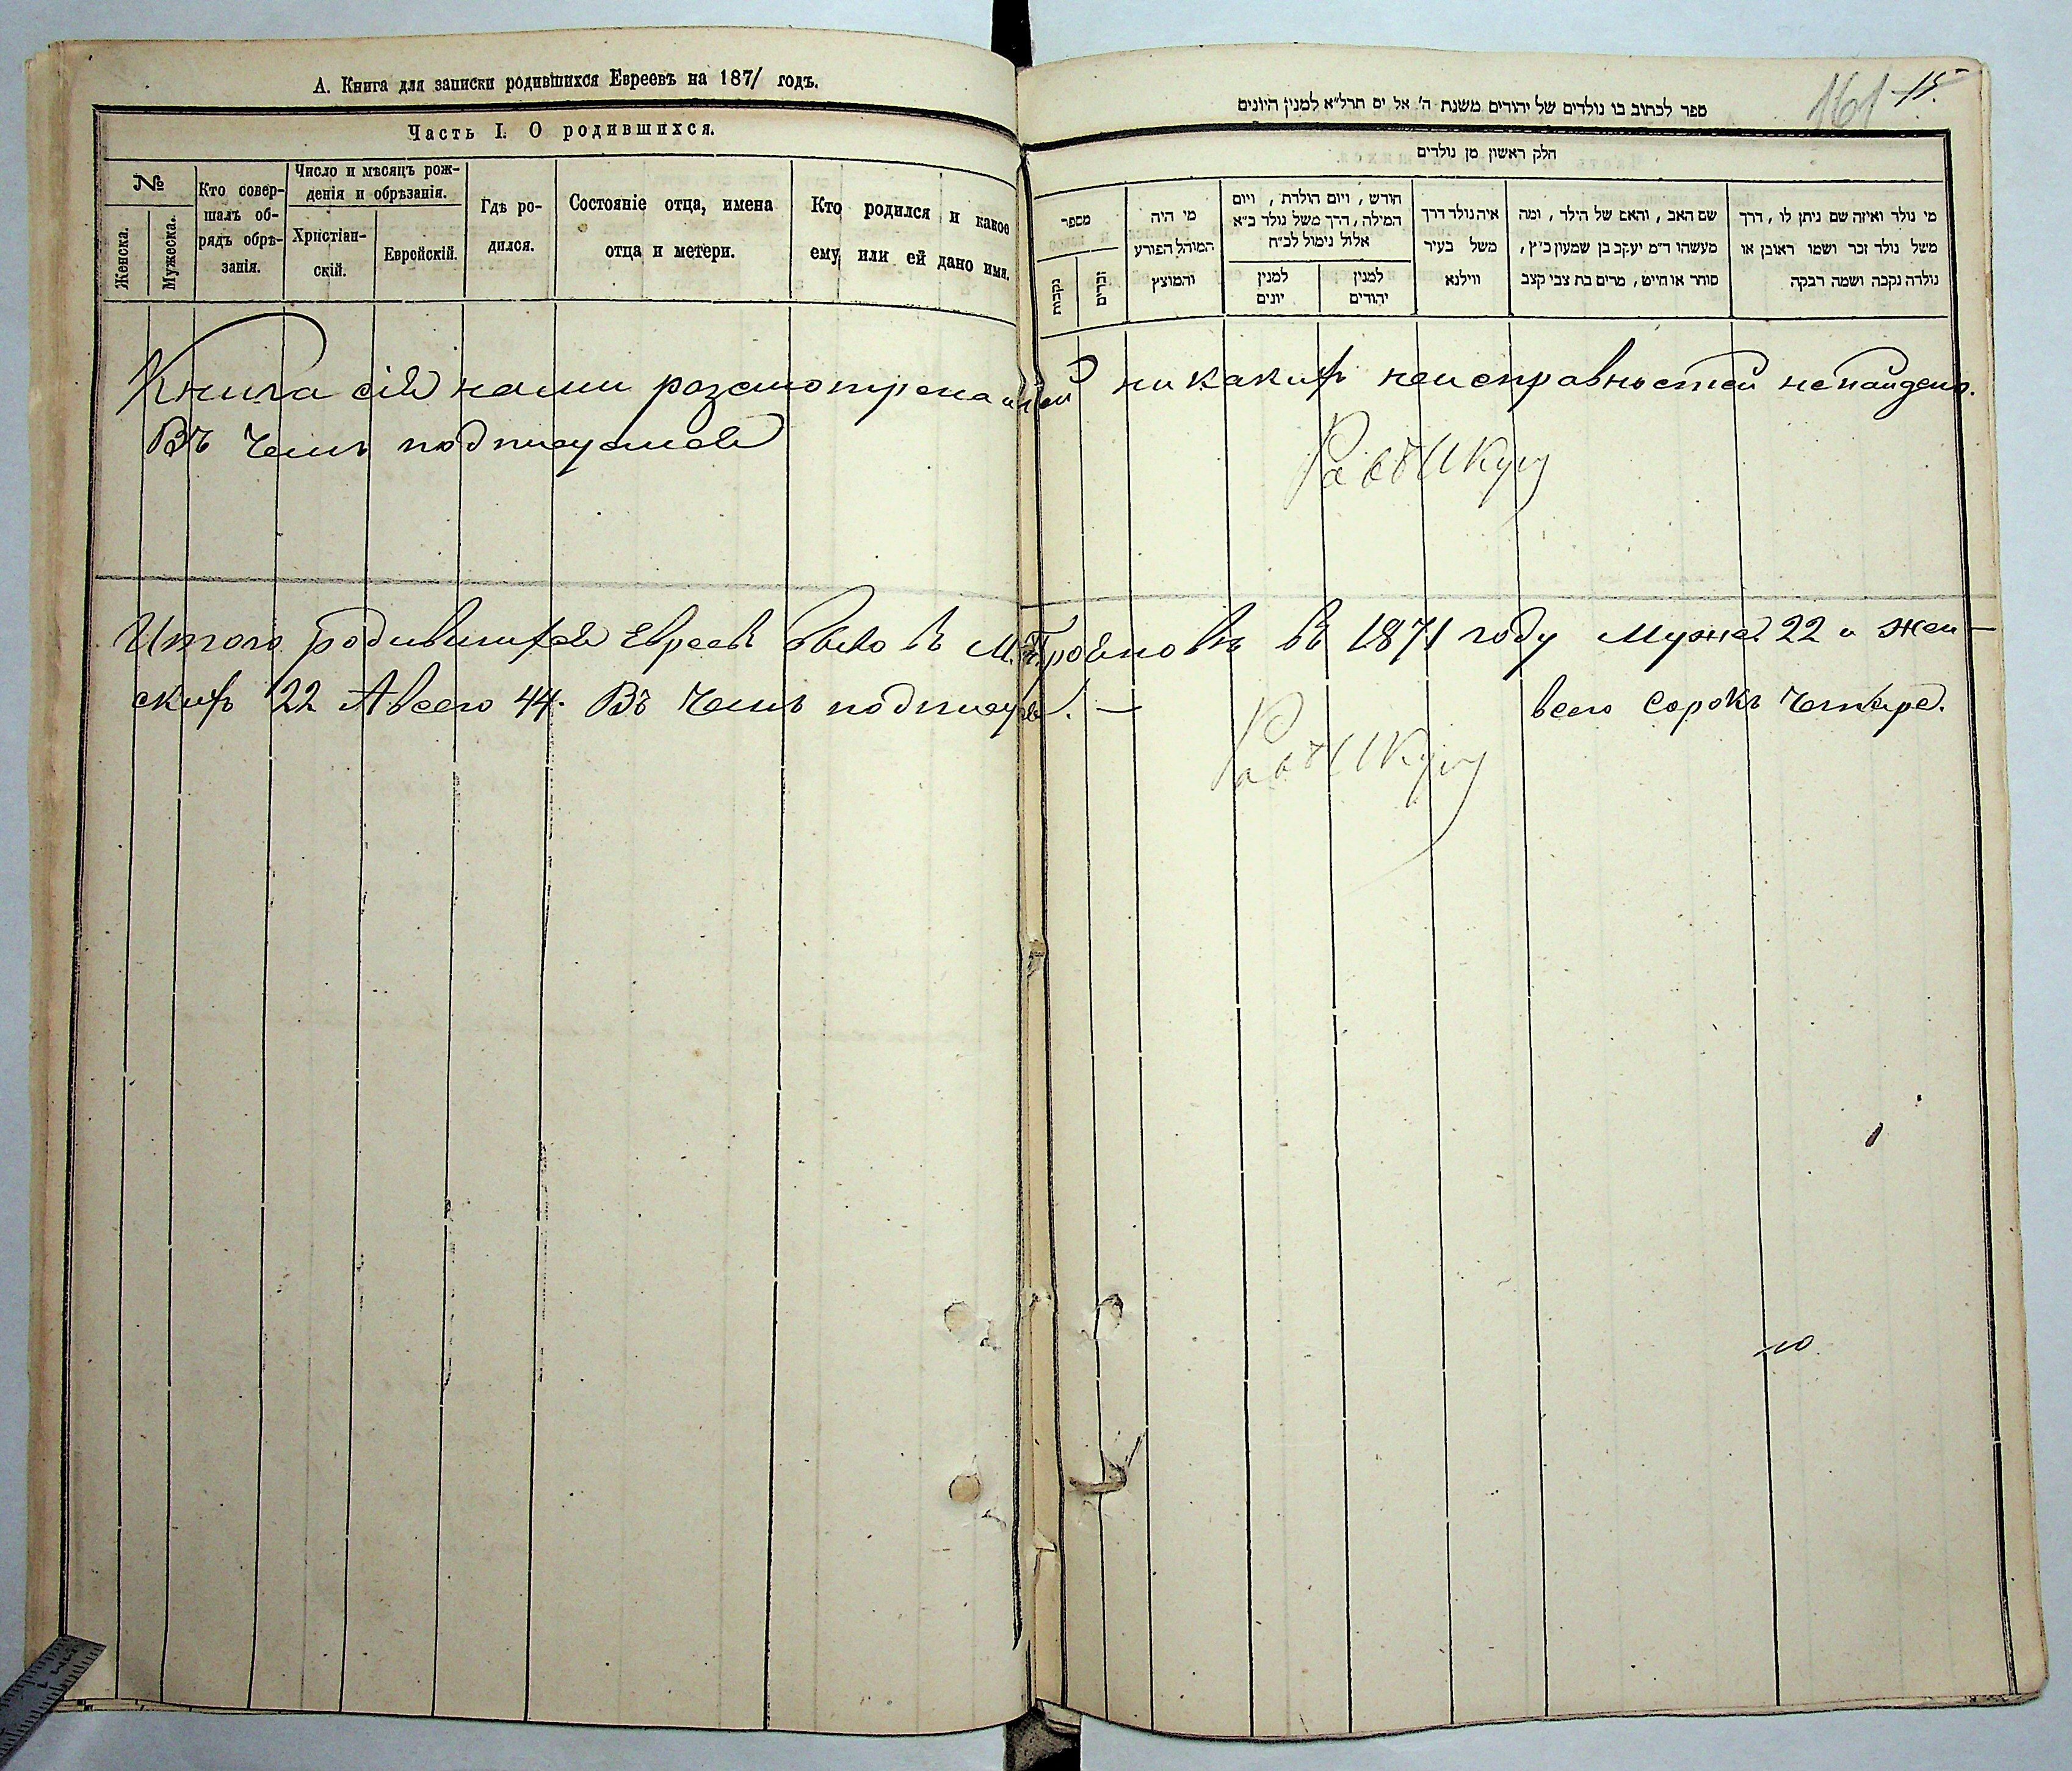 А. Книга для записки родившихся Евреевъ на 1871 годъ.
Часть I. О родившихся.
№
Женска.
Мужеска.
Кто совер-
шалъ об-
рядъ обрѣ-
занія.
Число и мѣсяцъ рож-
денія и обрѣзанія.
Христіан-
скій.
Еврейскій.
Гдѣ ро-
дился.
Состояніе отца, имена
отца и метери.
Кто родился и какое
ему или ей дано имя.
161 15.
ספר לכתוב בו נולדים של יהודים משנת ה' אל ים תרל״א למנין היונים
חלק ראשון מן נולדים
מספר
נקבות
זכרים
מי היה
המוהל הפורע
והמוצץ
חודש, ויום הולדת, ויום
המילה, הדך משל נולד ב״א
אלול נימול לכ״ח
למנין
יונים
למנין
יהודים
איה נולד דרך
משל בעיר
ווילנא
שם האב, והאם של הילד, ומה
מעשהו ד״מ יעקב בן שמעון כ״ץ,
סוחר או חייט, מרים בת צבי קצב
מי נולד ואיזה שם ניתן לו, דרך
משל נולד זכר ושמו ראובן או
נולדה נקבה ושמה רבקה
Книга сія нами разсмотрена и въ ней никакихъ неисправностей не найдено.
Въ чемъ подписуемся
Итого родившихся Евреевъ было въ М. въ 1871 году Мужес 22 и жен-
скихъ 22 А всего 44. Въ чемъ подписуемся. — всего сорокъ четыре.
10